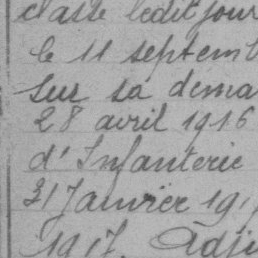 classe ledit jour
le 11 septemb
Sur sa dema
28 avril 1916
d'Infanterie
31 Janvier 191
1917. Adj